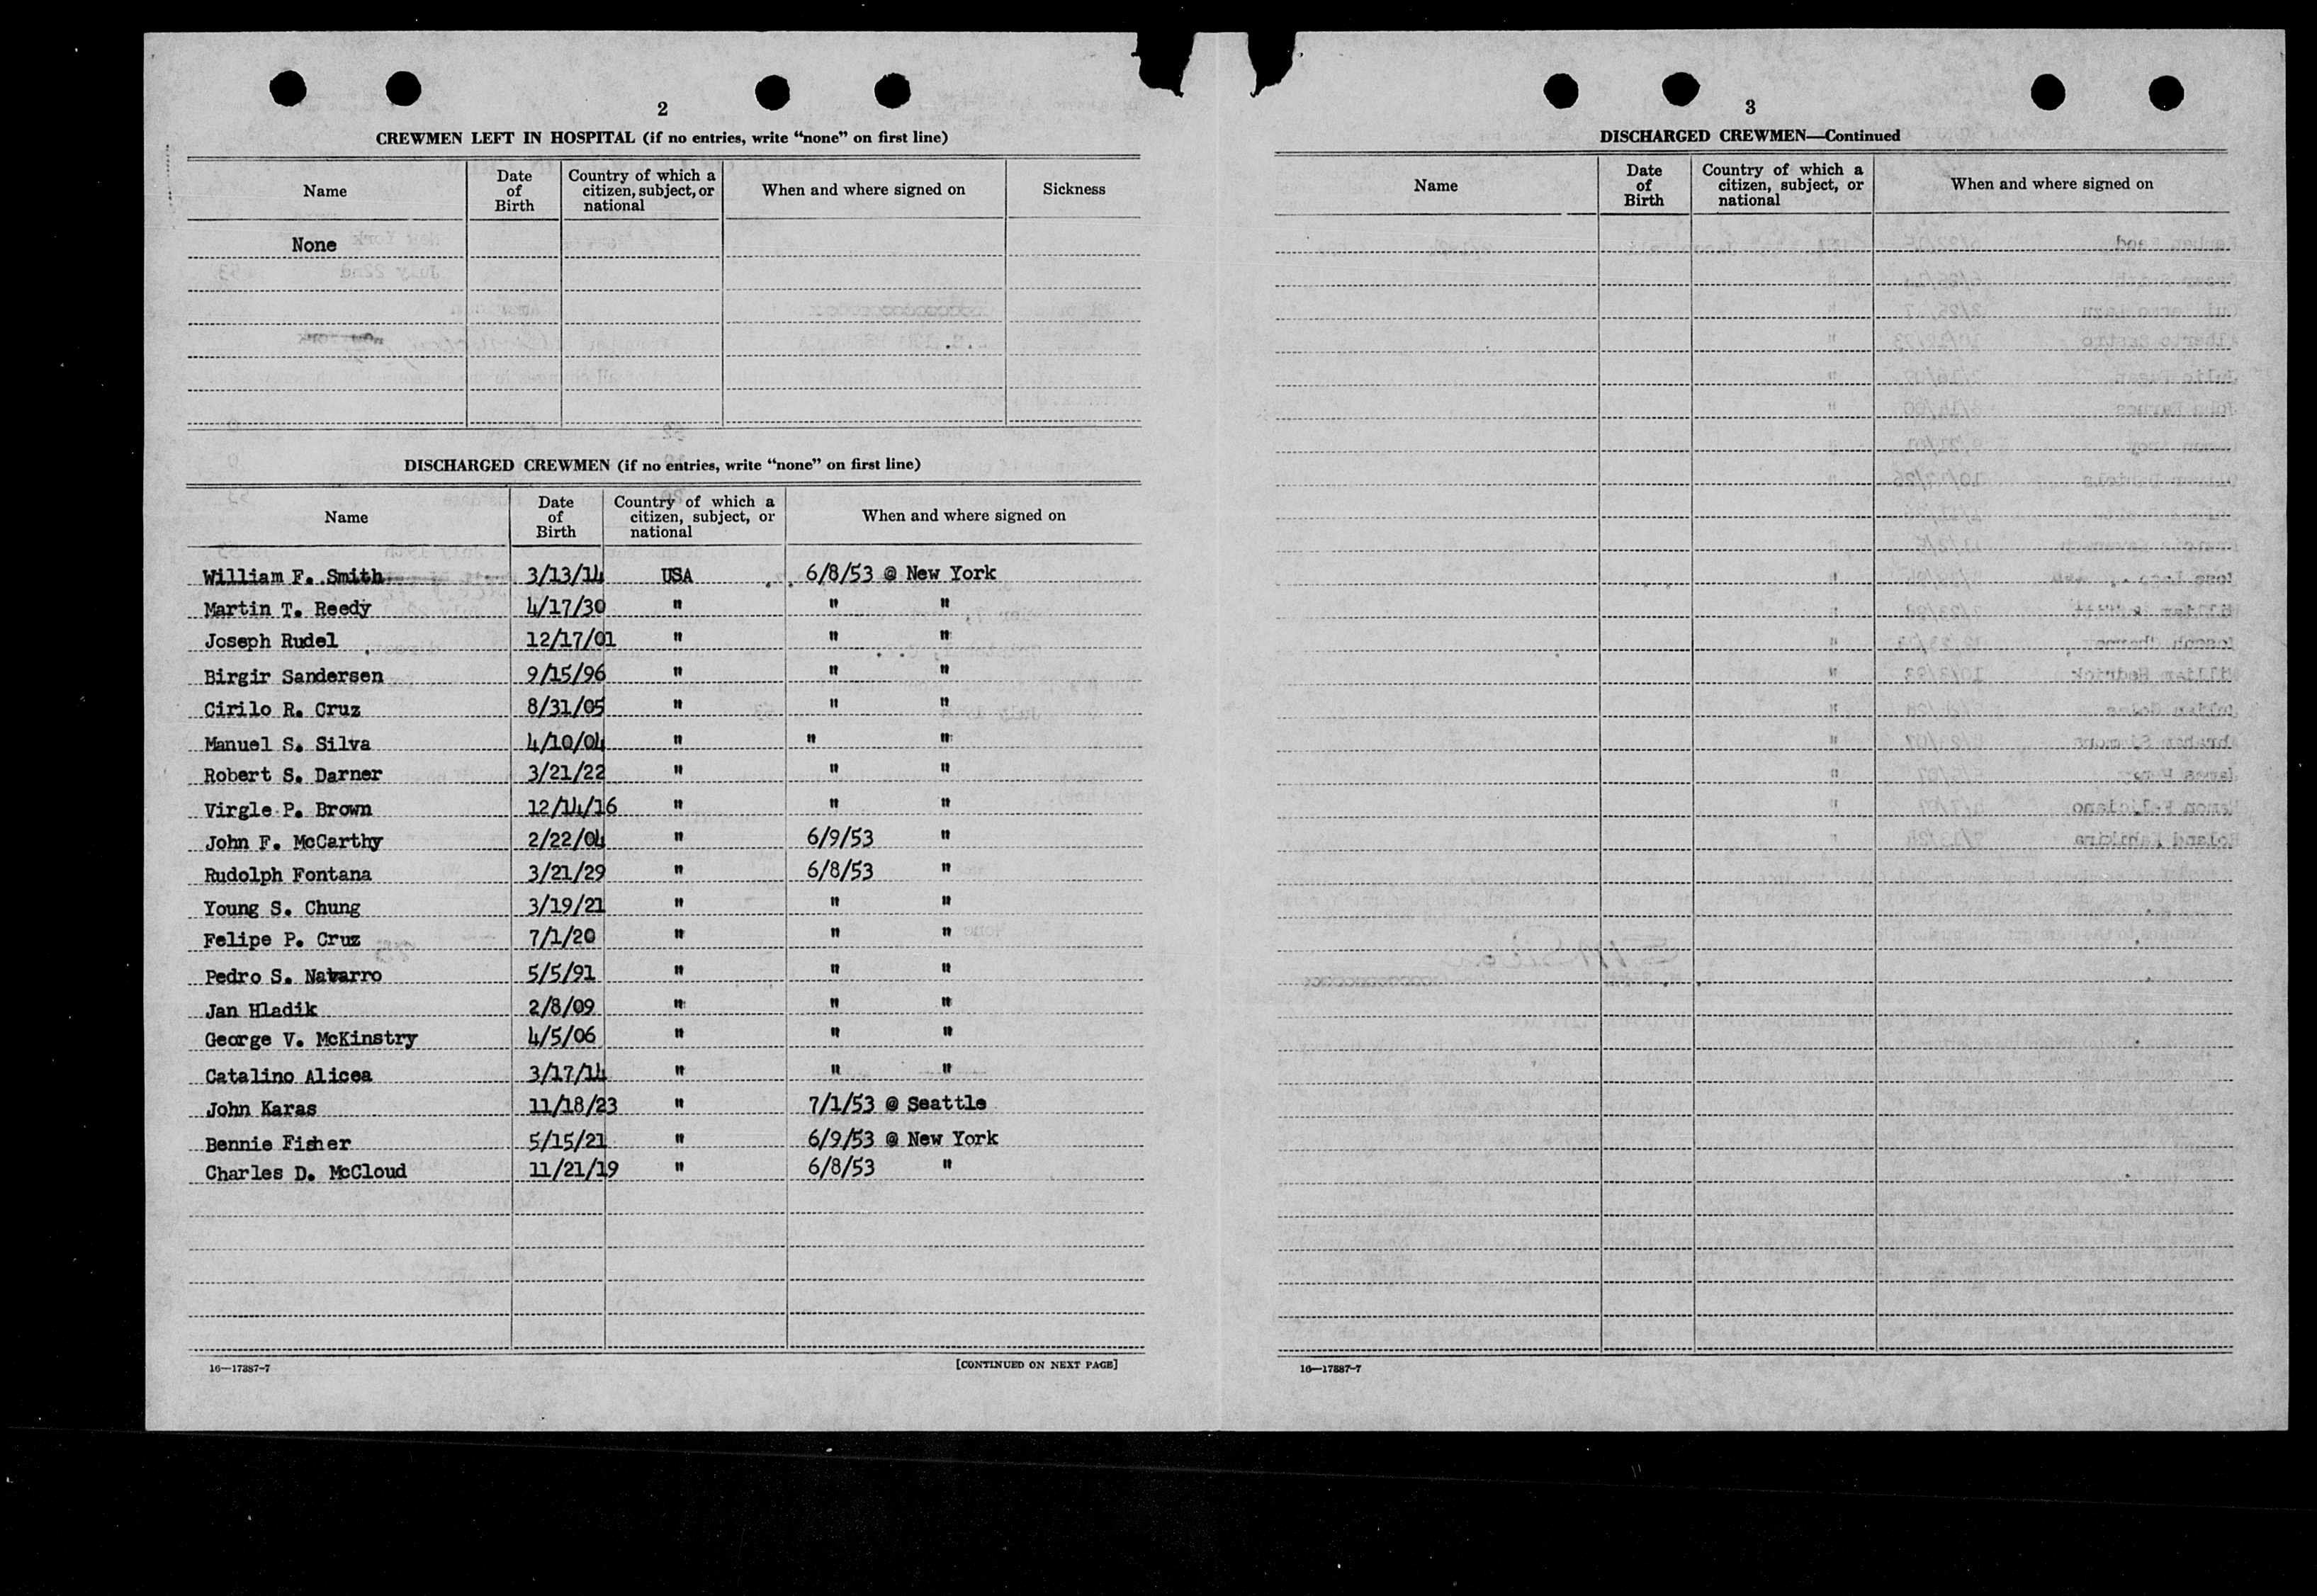 2
CREWMEN LEFT IN HOSPITAL (if no entries, write "none" on first line)
Name Date of Birth Country of which a citizen, subject, or national When and where signed on Sickness
None
DISCHARGED CREWMEN (if no entries, write "none" on first line)
Name Date of Birth Country of which a citizen, subject, or national When and where signed on
William F. Smith 3/13/14 USA 6/8/53 @ New York
Martin T. Reedy 4/17/30 " " "
Joseph Rudel 12/17/01 " " "
Birgir Sandersen 9/15/96 " " "
Cirilo R. Cruz 8/31/05 " " "
Manuel S. Silva 4/10/04 " " "
Robert S. Darner 3/21/22 " " "
Virgle P. Brown 12/14/16 " " "
John F. McCarthy 2/22/04 " 6/9/53 "
Rudolph Fontana 3/21/29 " 6/8/53 "
Young S. Chung 3/19/21 " " "
Felipe P. Cruz 7/1/20 " " "
Pedro S. Navarro 5/5/91 " " "
Jan Hladik 2/8/09 " " "
George V. McKinstry 4/5/06 " " "
Catalino Alicea 3/17/14 " " "
John Karas 11/18/23 " 7/1/53 @ Seattle
Bennie Fisher 5/15/21 " 6/9/53 @ New York
Charles D. McCloud 11/21/19 " 6/8/53 "
16—17387-7 [CONTINUED ON NEXT PAGE]
3
DISCHARGED CREWMEN—Continued
Name Date of Birth Country of which a citizen, subject, or national When and where signed on
16—17387-7